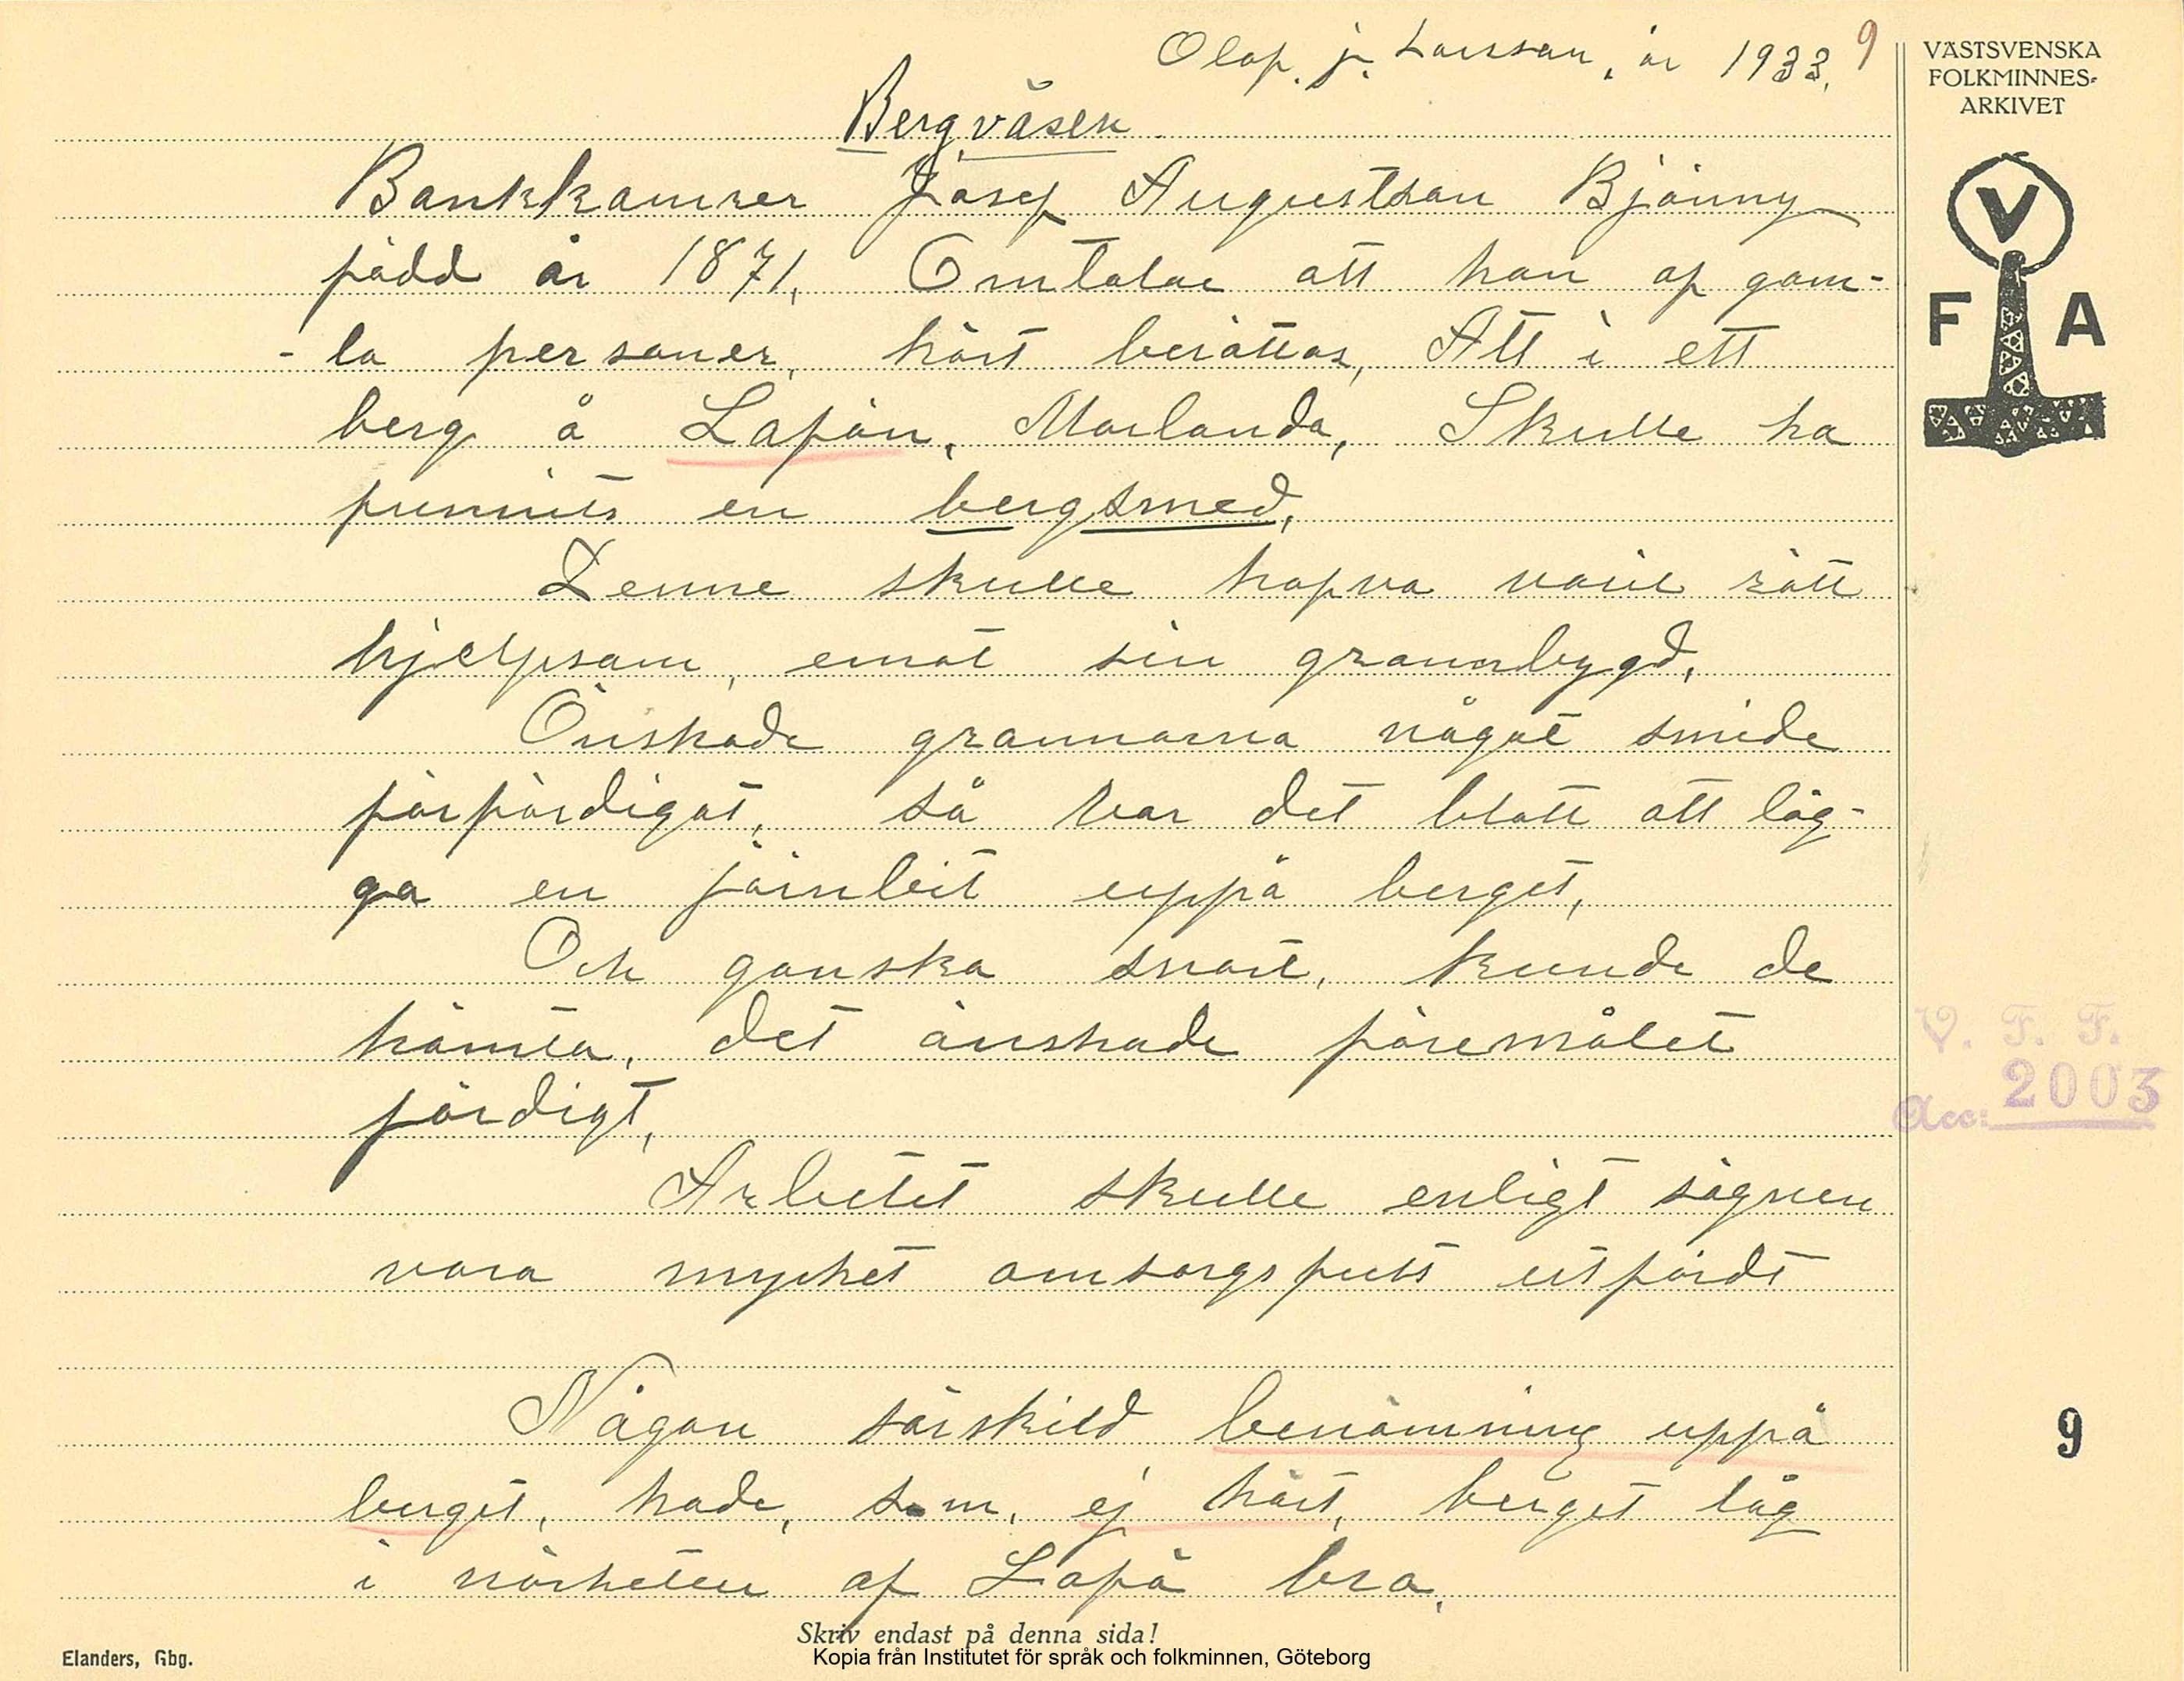 Olof. j. Larsson, år 1933. 9
VÄSTSVENSKA
FOLKMINNES-
ARKIVET
V
F A
Bergväsen
Bankkamrer Josef Augustsson Björnny
född år 1871, Omtalar att han af gam-
-la personer, hört berättas, Att i ett
berg å Lafön, Morlanda, Skulle ha
funnits en bergsmed,
Denne skulle hafva varit rätt
hjelpsam, emot sin grannbygd,
Önskade grannarna något smide
förfärdigat, så var det blott att läg-
ga en järnbit uppå berget,
Och ganska snart, kunde de
hämta, det önskade föremålet
färdigt,
Arbetet skulle enligt sägnen
vara mycket omsorgsfutt utfördt
V. F. F.
Acc: 2003
Någon särskild benämning uppå
berget, hade, s.m. ej hört, berget låg
i närheten af Lafö bro,
9
Skriv endast på denna sida!
Elanders, Gbg.
Kopia från Institutet för språk och folkminnen, Göteborg